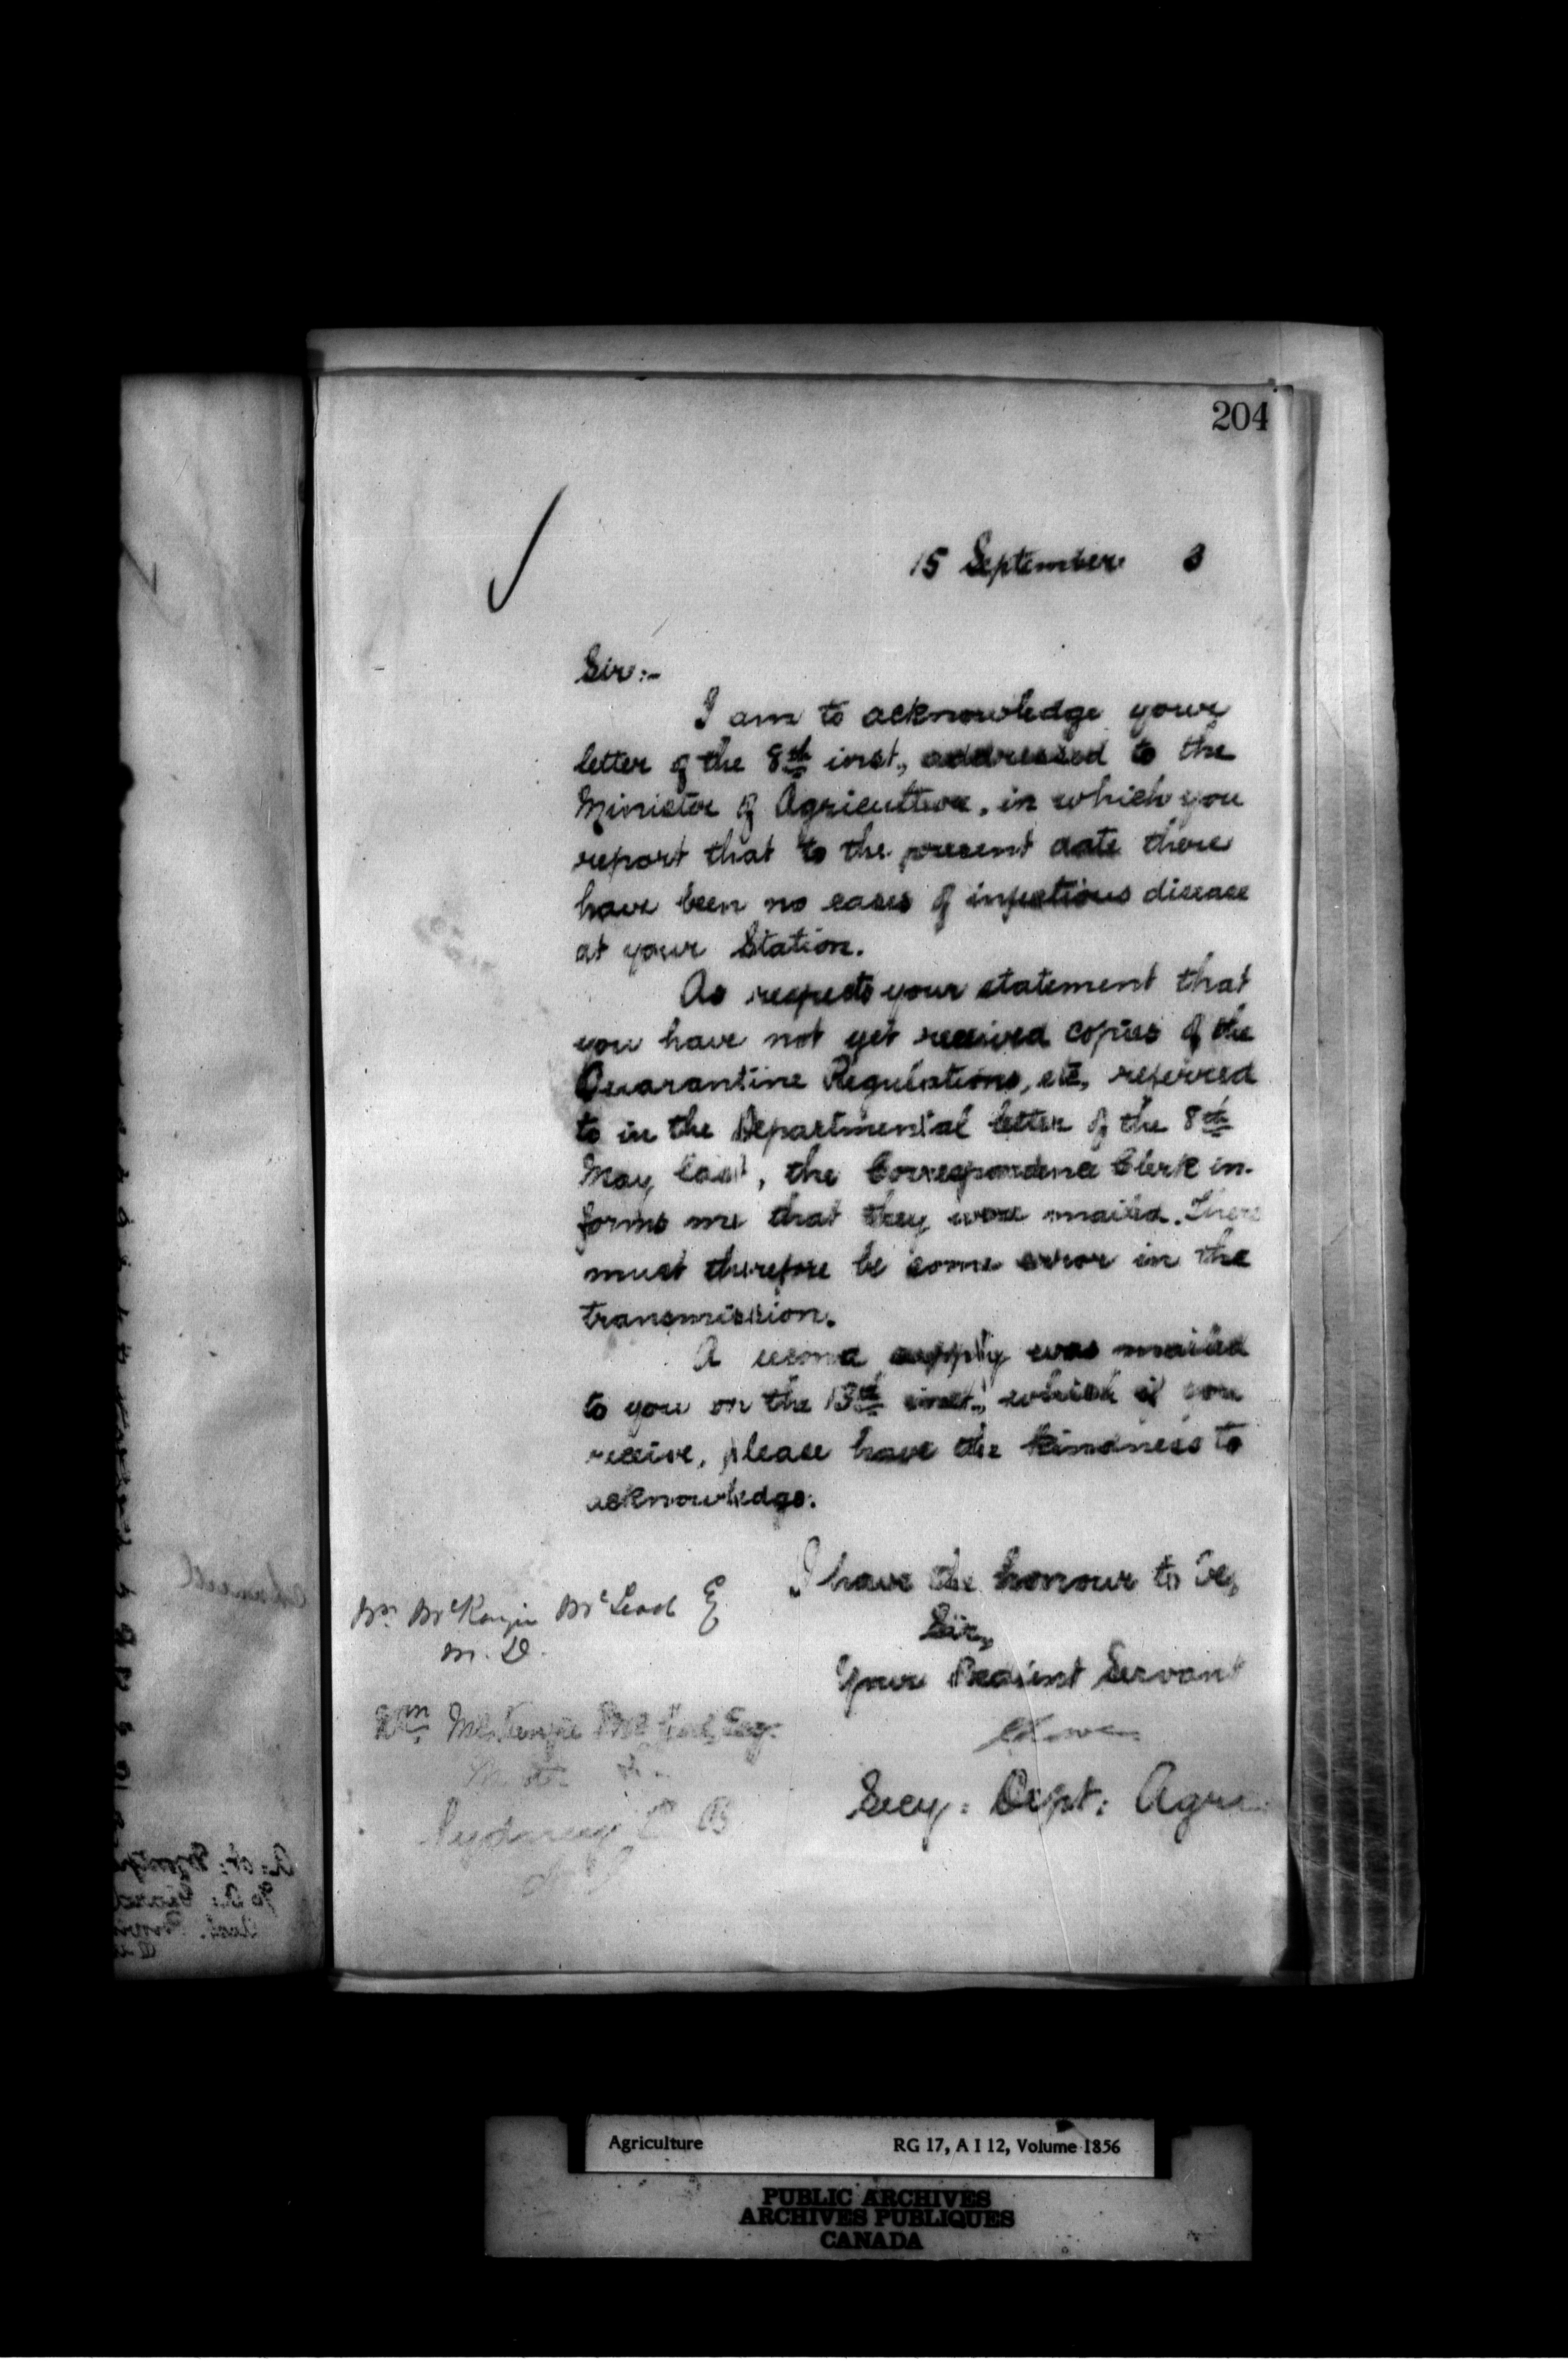 204
15 September 3
Sir:-
I am to acknowledge your
letter of the 8th inst., addressed to the
Minister of Agriculture, in which you
report that to the present date there
have been no cases of infectious disease
at your Station.
As respects your statement that
you have not yet received copies of the
Quarantine Regulations, etc, referred
to in the Departmental letter of the 8th
May last, the Correspondence Clerk in-
forms me that they were mailed. There
must therefore be some error in the
transmission.
A second supply was mailed
to you on the 13th inst., which if you
receive, please have the kindness to
acknowledge.
I have the honour to be,
Sir,
Your Obedient Servant
Secy: Dept: Agri
Wm McKenzie McLeod E
M.D.
Wm McKenzie McLeod, Esq.
Sydney C B
Agriculture RG 17, A I 12, Volume 1856
PUBLIC ARCHIVES
ARCHIVES PUBLIQUES
CANADA